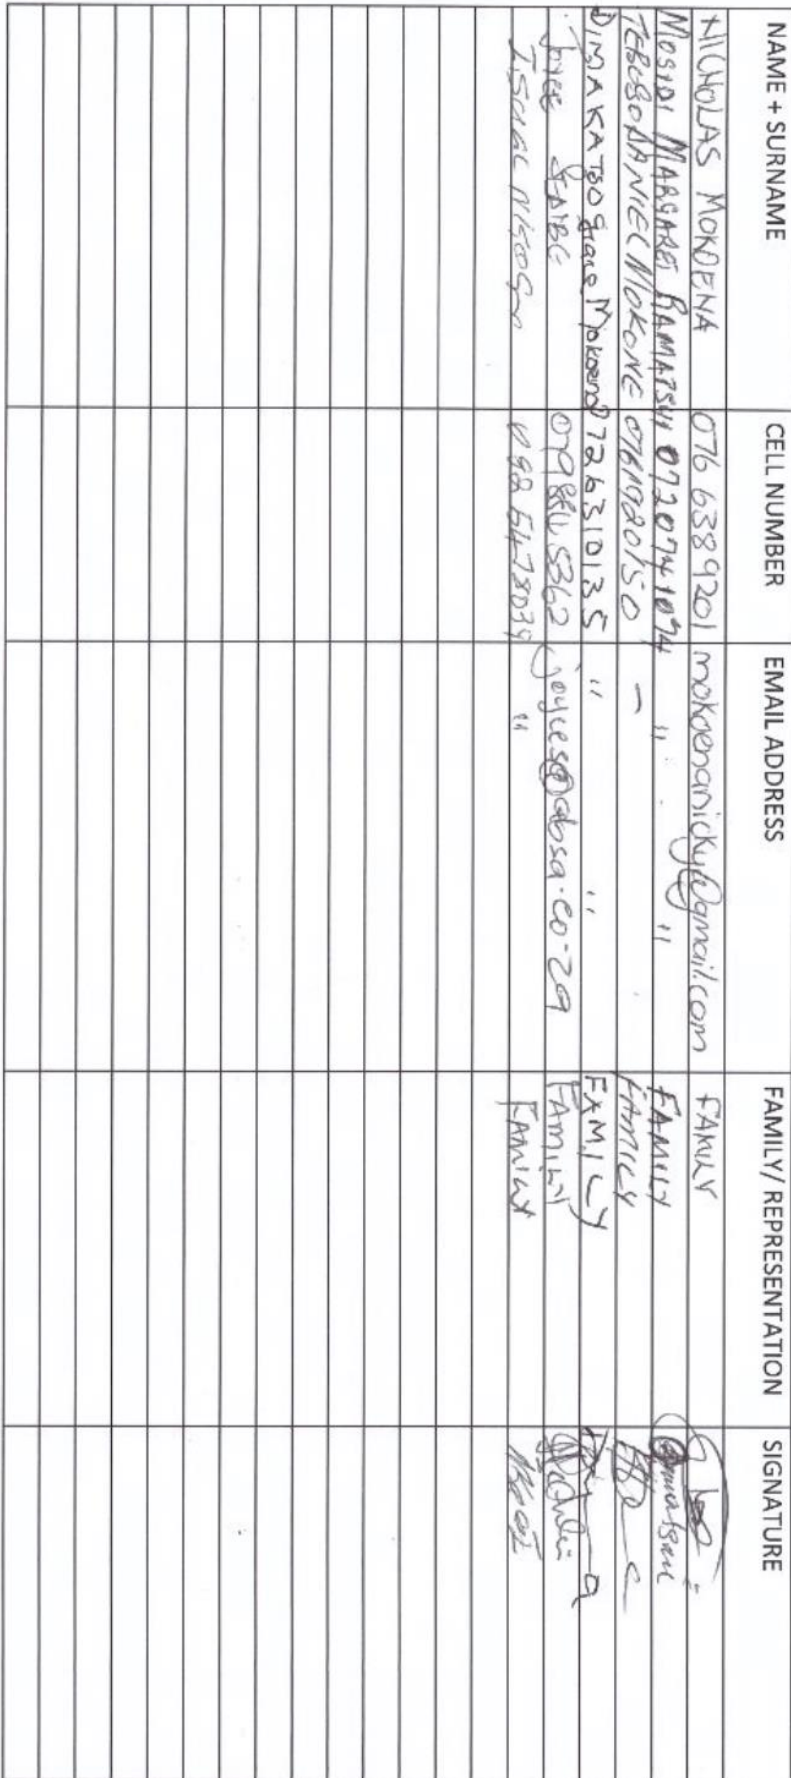 NAME + SURNAME CELL NUMBER EMAIL ADDRESS FAMILY/ REPRESENTATION SIGNATURE
NICHOLAS MOKOENA 076 638 9201 mokoenanicky@gmail.com FAMILY
MOSIDI MARGARET RAMATSUI 0720741074 " " FAMILY
TEBOGO DANIEL MOKONE 0761920150 - FAMILY
DIMAKATSO Grace Mokoena 0726310135 " " FAMILY
Joyce 079 joyces@absa.co.za FAMILY
Isaac " FAMILY